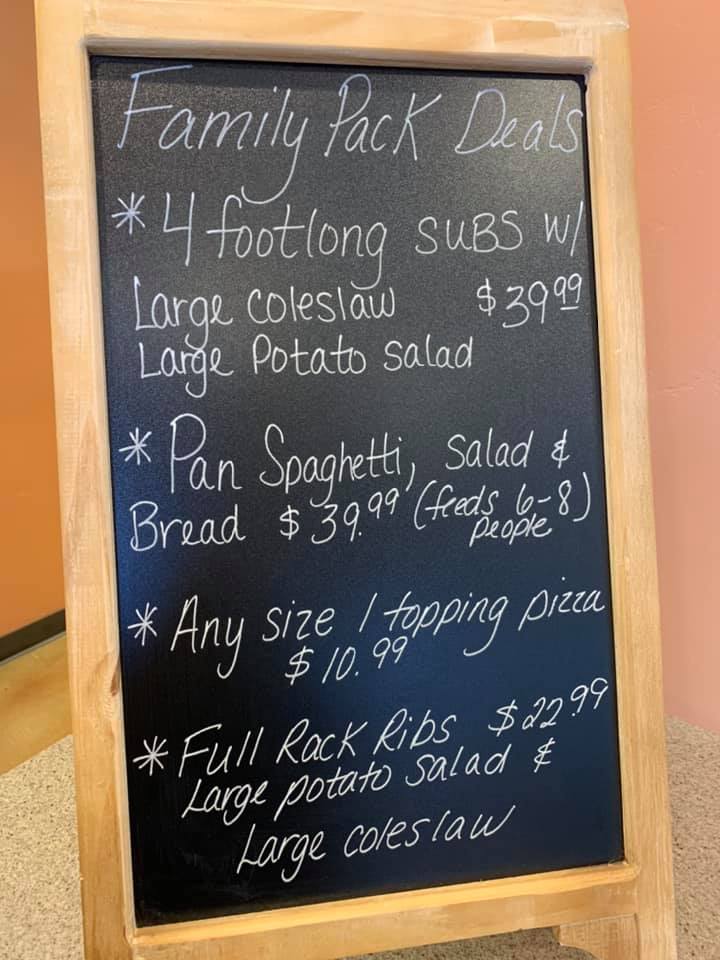 Family Pack Deals
* 4 footlong SUBS w/
Large coleslaw $39.99
Large Potato salad
* Pan Spaghetti, Salad &
Bread $39.99 (feeds 6-8)
people
* Any size 1 topping pizza
$10.99
* Full Rack Ribs $22.99
Large potato salad &
Large coleslaw